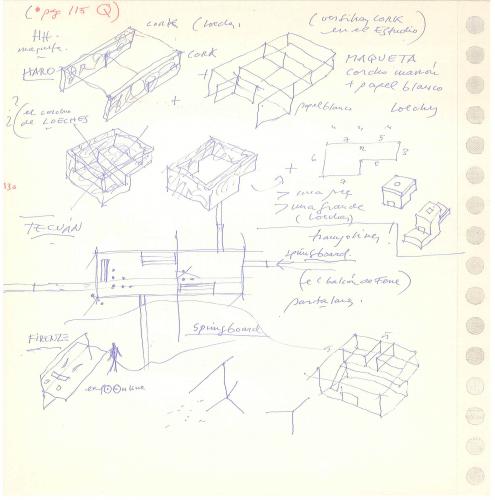 (• pag 115 Q)
HH.
maqueta.
HARO
CORK (Loeches)
CORK
(versiones CORK
en el Estudio)
MAQUETA
corcho marrón
+ papel blanco
papel blanco
Loeches
?
? (el corcho
de LOECHES
7 5
6 2 3
7 6
+
> una pq
> una grande
(Loeches)
TECNÁN
trampolines!
springboard.
(el balcón de Fene)
pantalanes.
springboard
FIRENZE